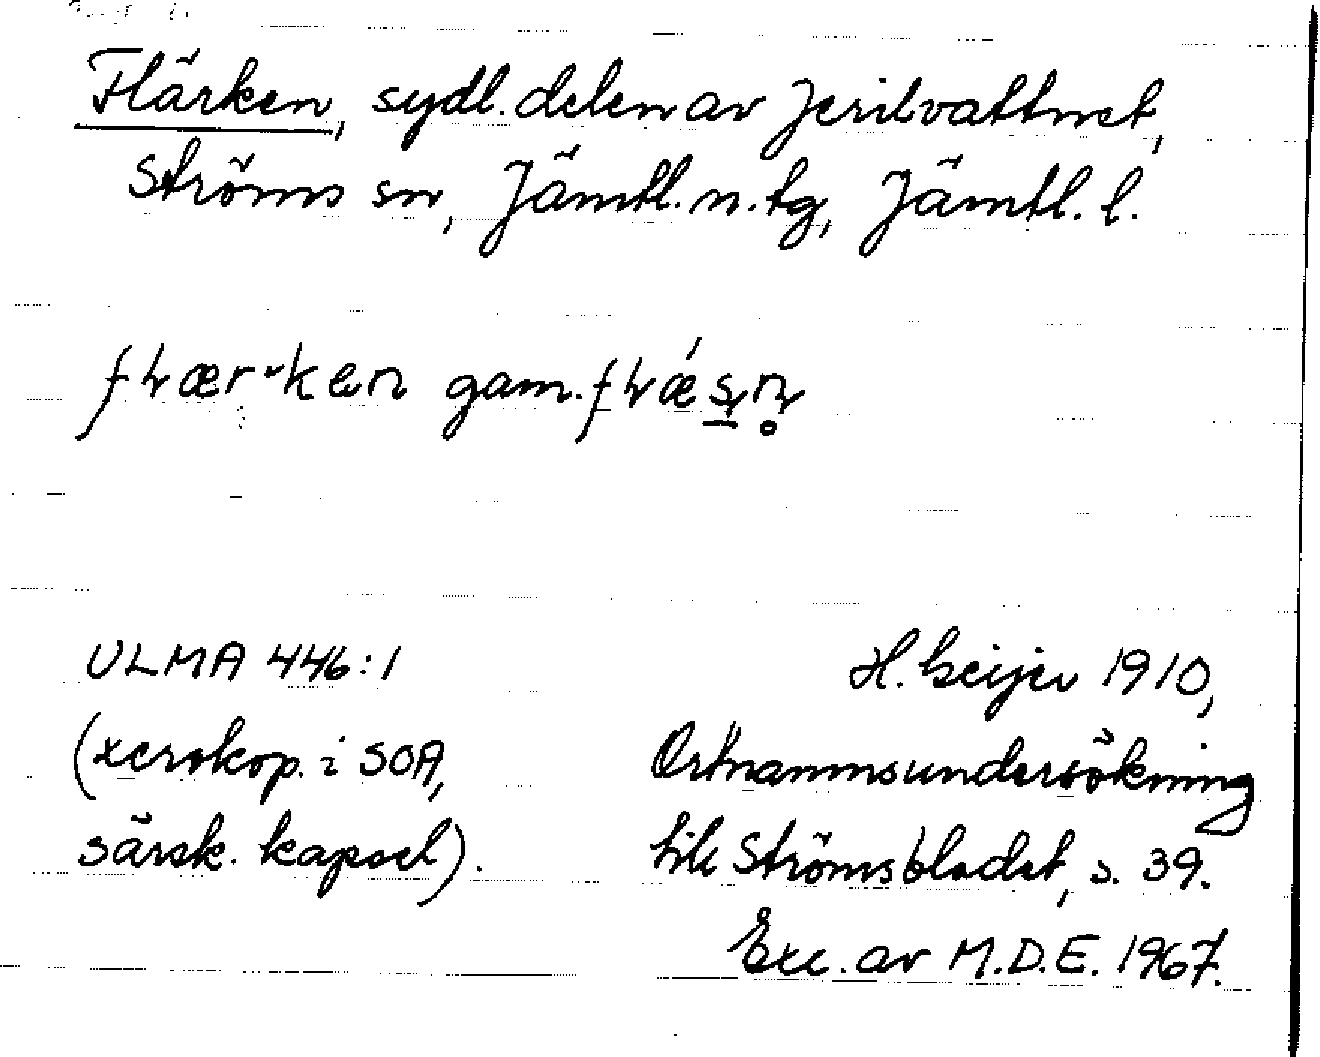 Flärken, sydl. delen av Jerilvattnet,
Ströms sn, Jämtl. n. tg, Jämtl. l.
gam.
ULMA 446:1
(xerokop. i SOA,
särsk. kapsel).
H. Geijer 1910,
Ortnamnsundersökning
till Strömsbladet, s. 39.
Exc. av M.D.E. 1967.